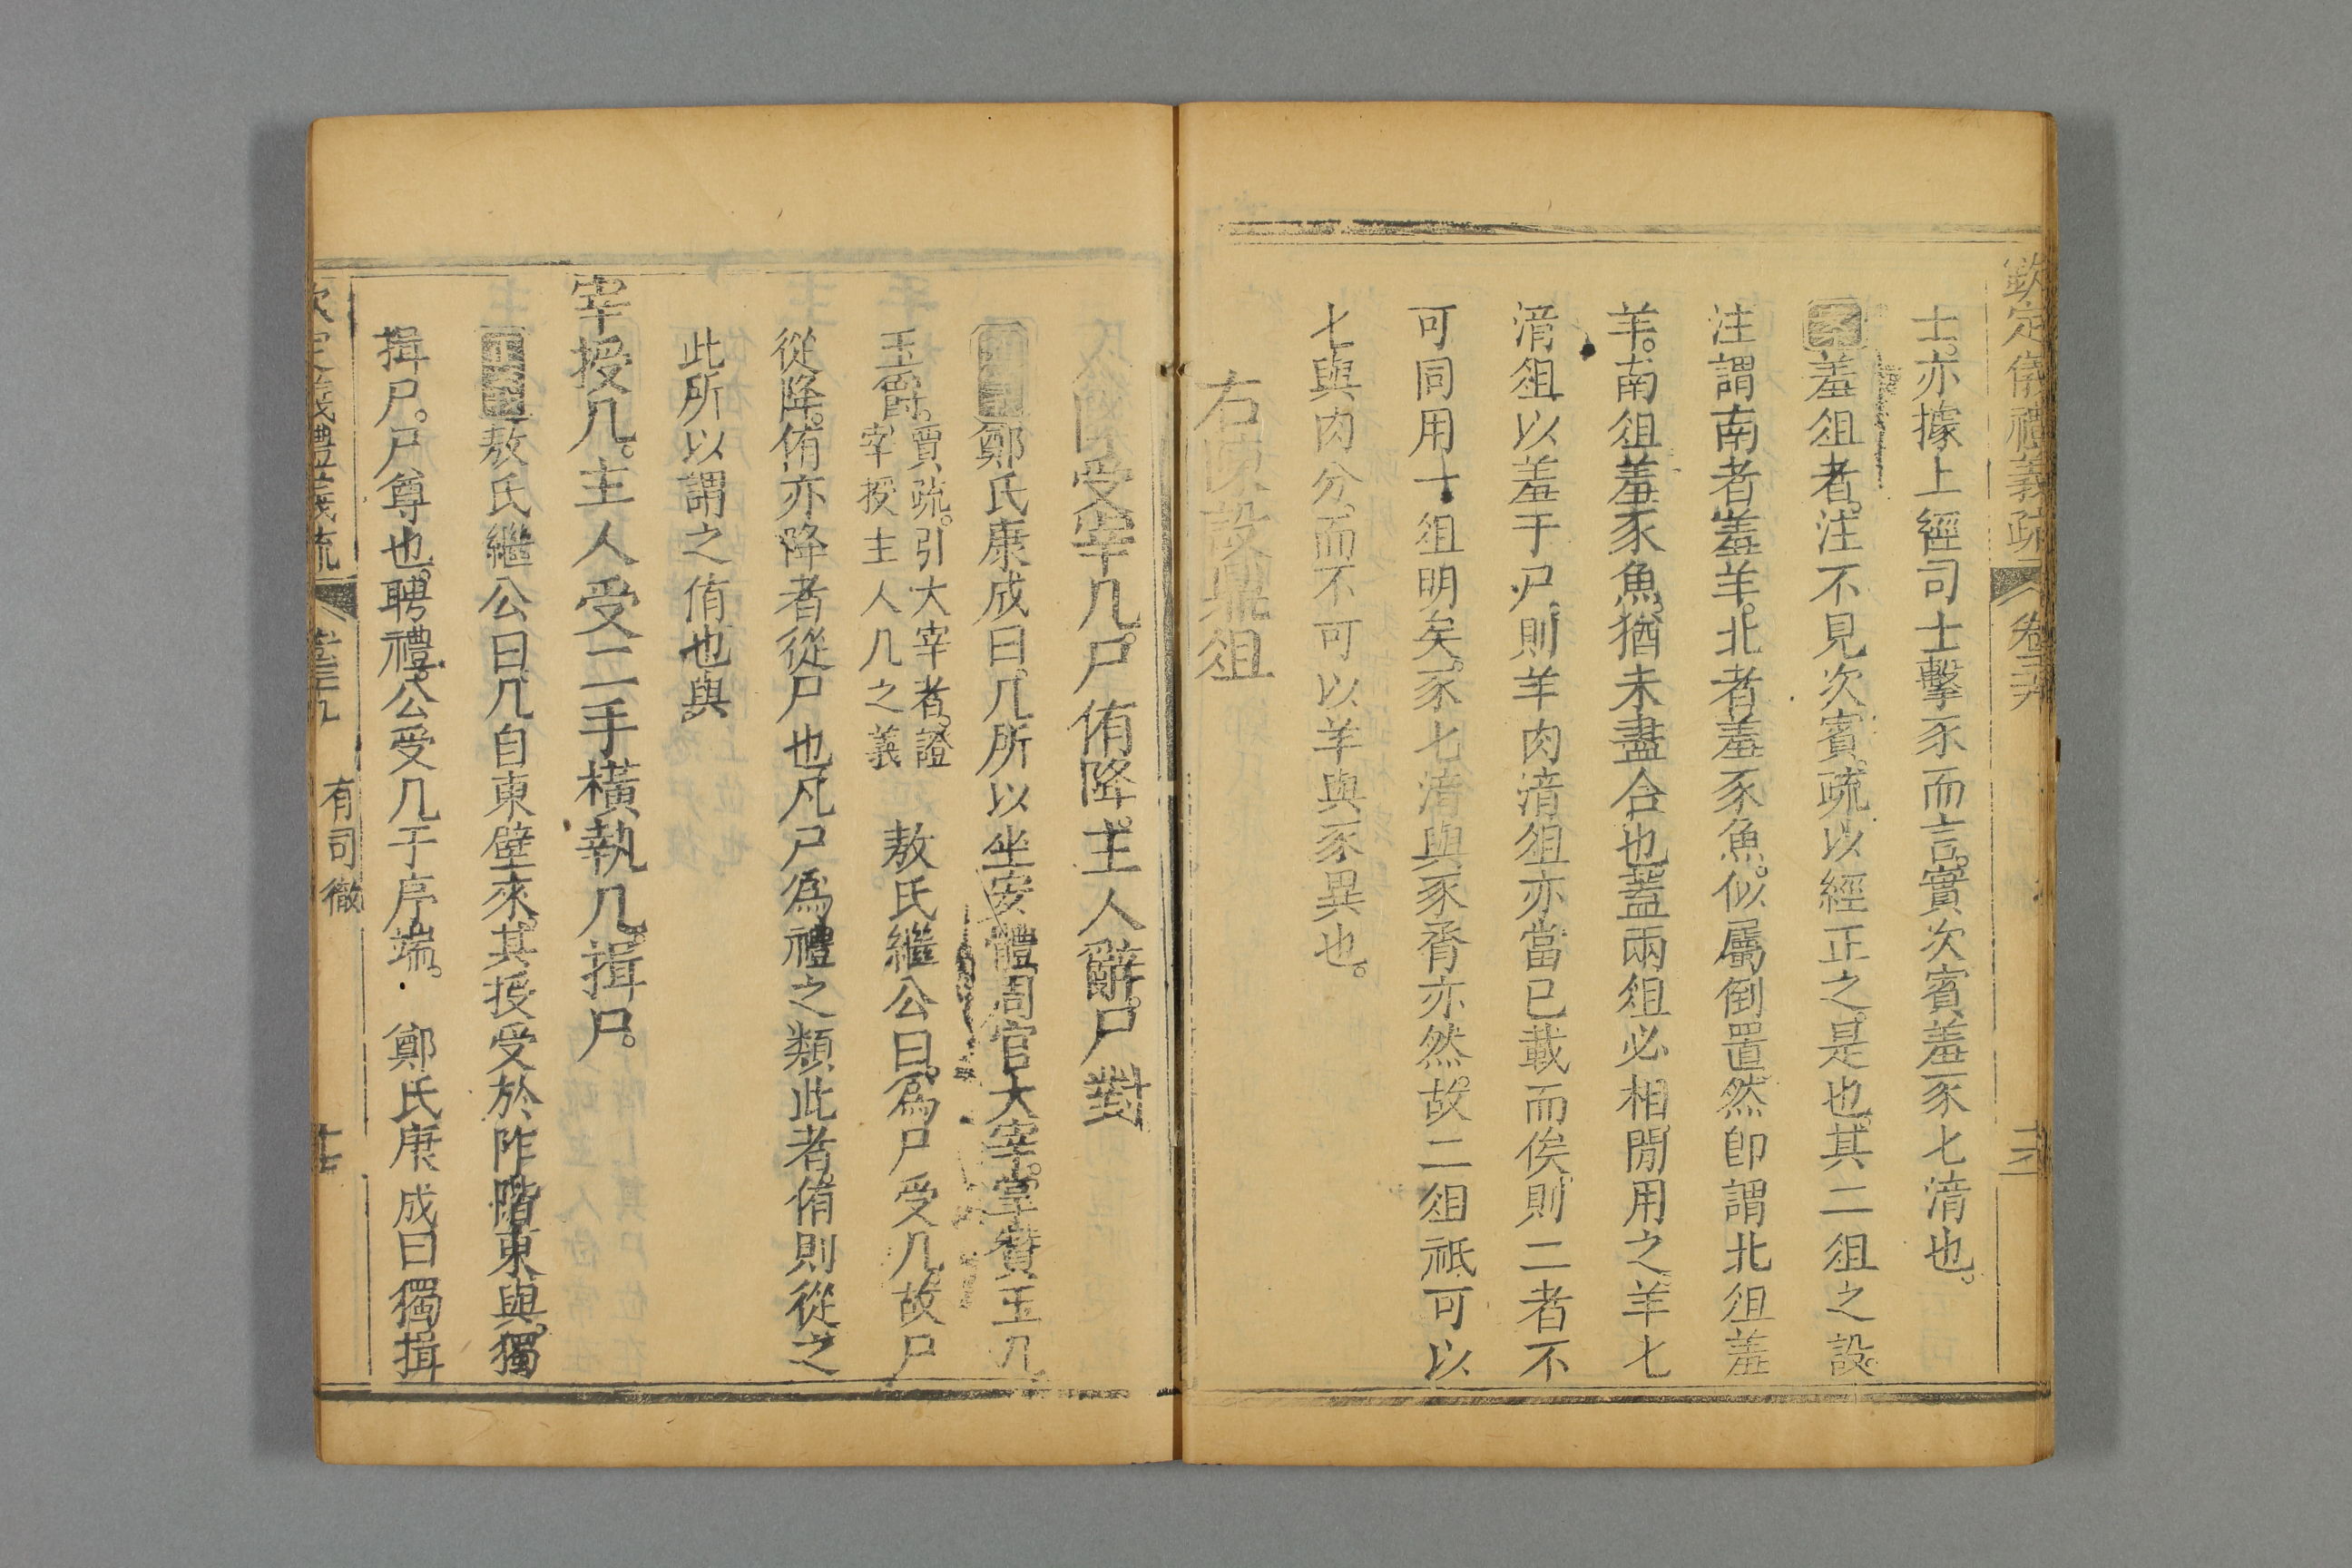 欽定儀禮義疏 卷三十九
士。亦據上經司士擊豕而言。實次賓羞豕匕湇也。
案羞俎者。注不見次賓。疏以經正之。是也。其二俎之設。
注謂南者羞羊。北者羞豕魚。似屬倒置。然卽謂北俎羞
羊。南俎羞豕魚。猶未盡合也。蓋兩俎必相閒用之。羊匕
湇俎以羞于尸。則羊肉湇俎亦當已載而俟。則二者不
可同用一俎明矣。豕匕湇與豕脀亦然。故二俎祇可以
匕與肉分。而不可以羊與豕異也。
右陳設鼎俎
主人降受宰几。尸侑降。主人辭。尸對
鄭氏康成曰。几所以坐安體。周官大宰。掌贊玉几
玉爵。賈疏。引大宰者。證宰授主人几之義 敖氏繼公曰。爲尸受几。故尸
從降。侑亦降者。從尸也。凡尸爲禮之類此者。侑則從之
此所以謂之侑也與。
宰授几。主人受二手橫執几。揖尸。
敖氏繼公曰。几自東壁來。其授受於阼階東與。獨
揖尸。尸尊也。聘禮。公受几于序端。 鄭氏康成曰獨揖
有司徹